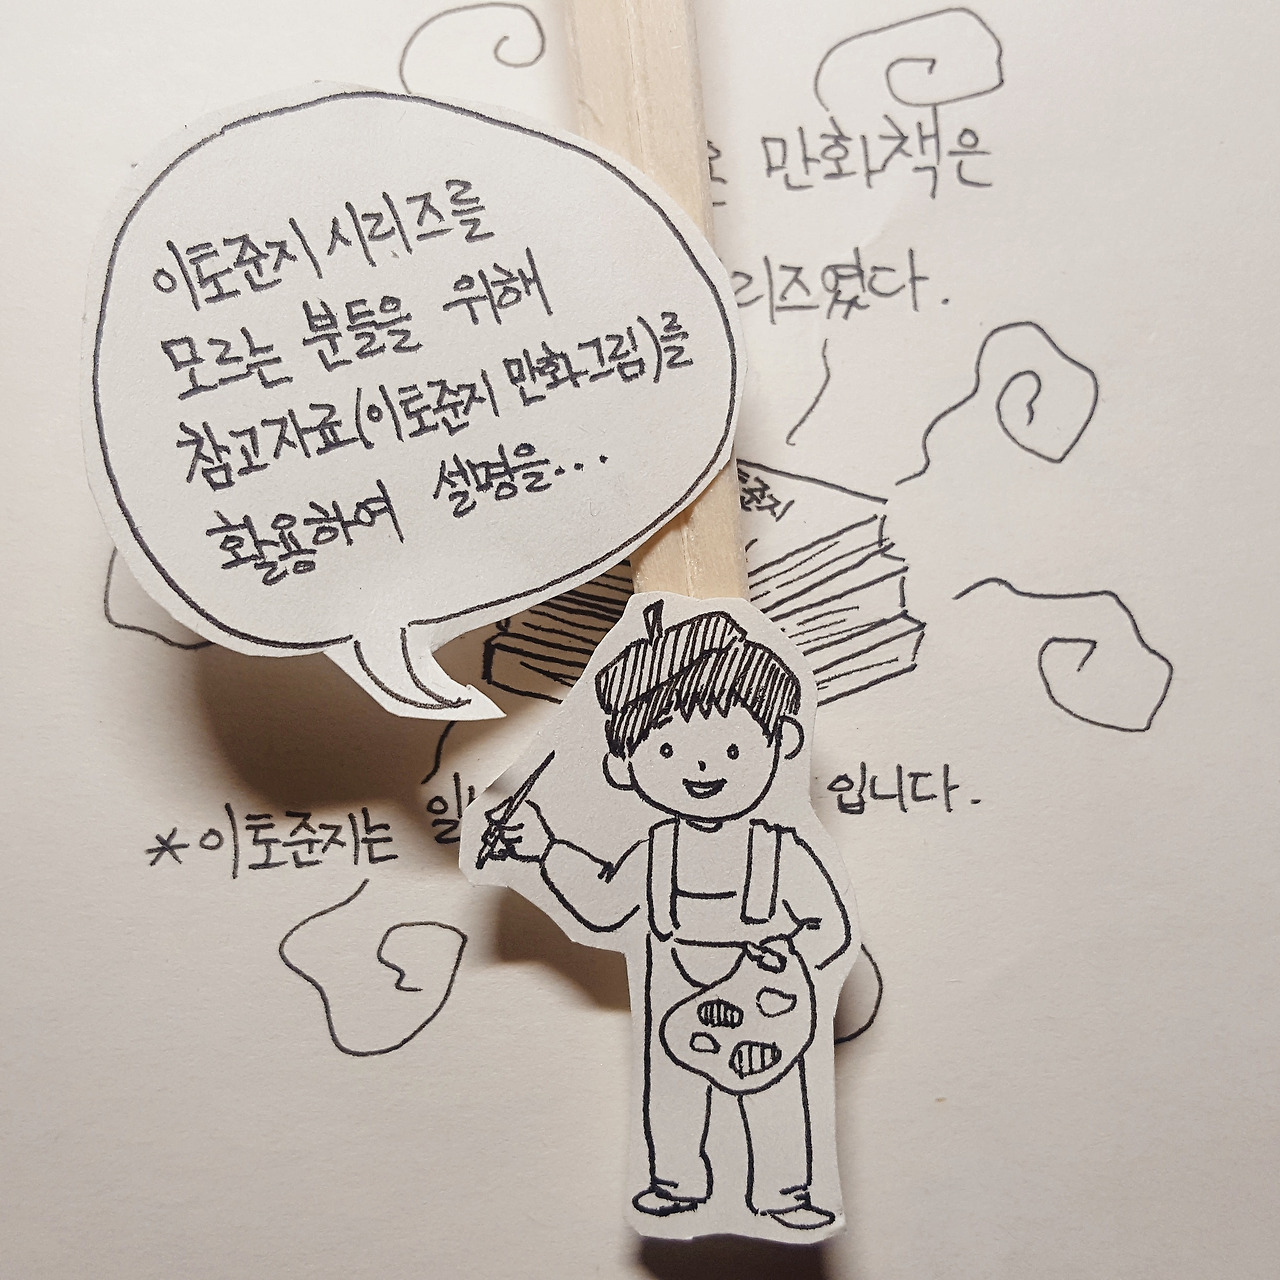 만화책은
리즈였다.
이토준지 시리즈를
모르는 분들을 위해
참고자료(이토준지 만화그림)를
활용하여 설명을...
토준지
*이토준지는 일
입니다.